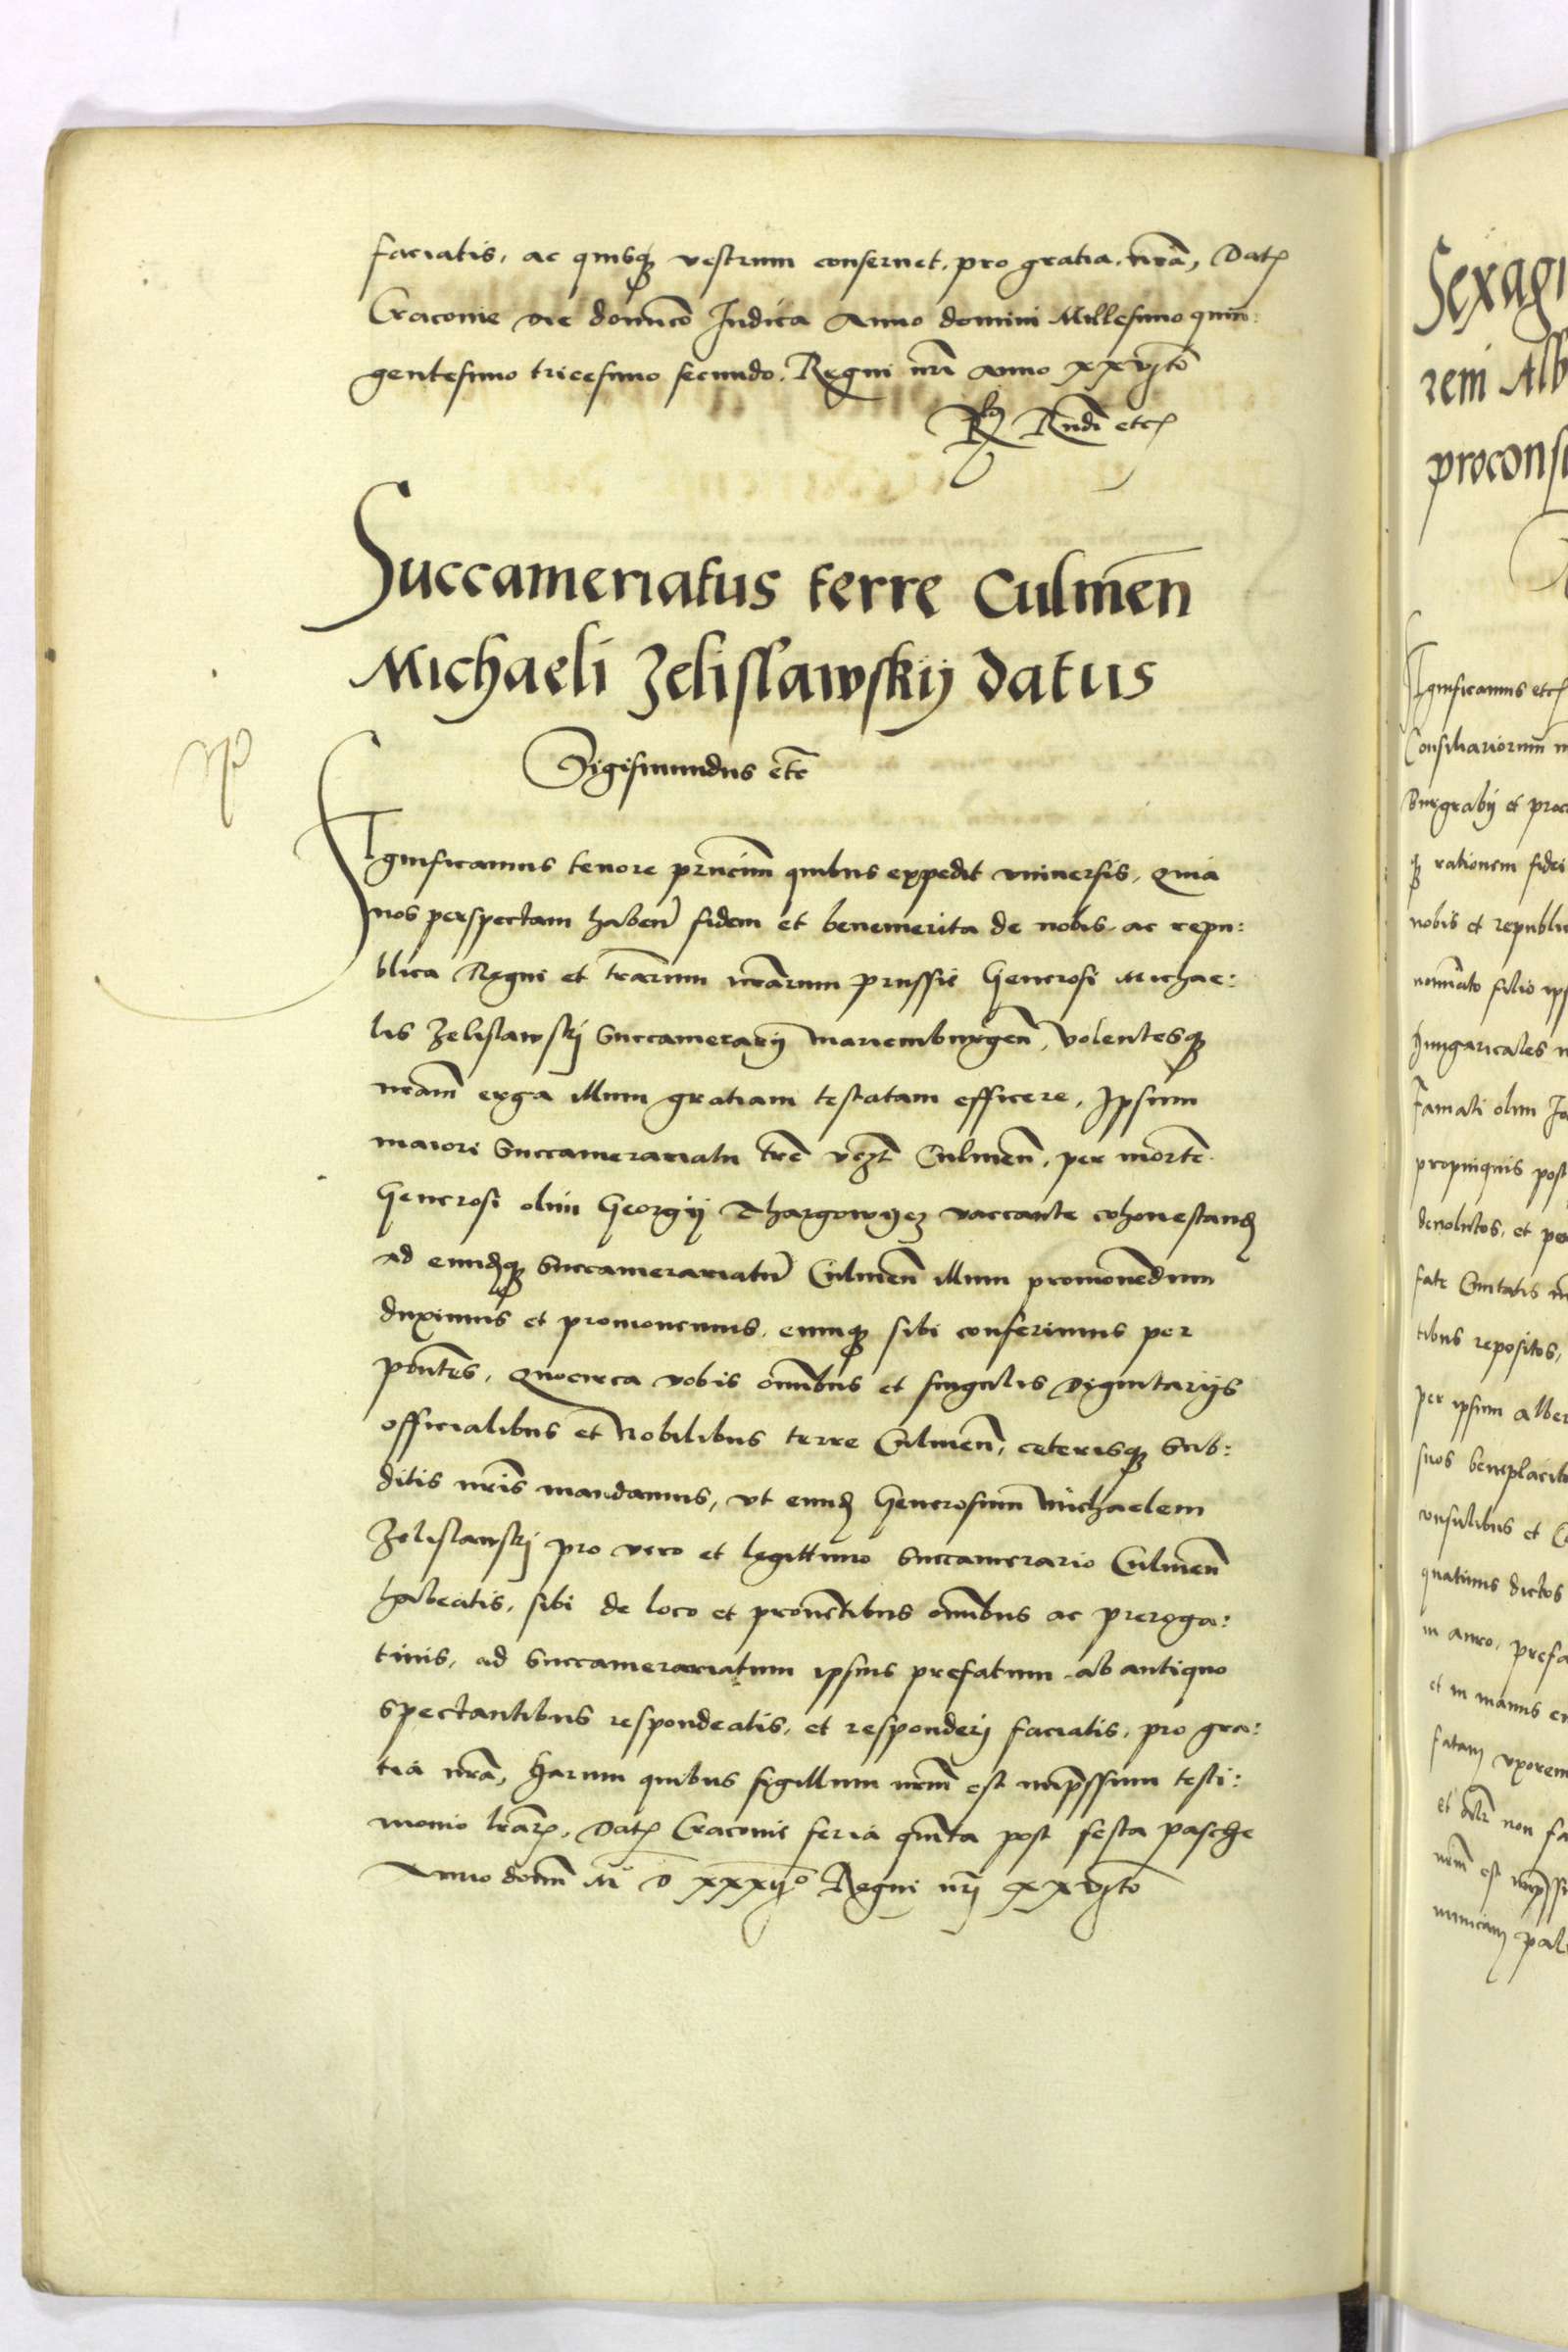 faciatis, ac quisq̃ vestrum conservet, pro gratia nrã, Datƺ
Cracovie die dominico Judica Anno domini Millesimo quin:
gentesimo tricesimo secundo, Regni nri anno xxvjto
Rndi etcƺ
Succameriatus terre Culmeñ
Michaeli Zelislawskij datus
Sigismundus etc̃
Significamus tenore pr̃ncium quibus expedit universis, Quia
nos perspectam haben̄ fidem et benemerita de nobis ac repu:
blica Regni et trãrum nrãrum prussie Generosi Michae:
lis Zelislawskj Succamerarij mariemburgeñ, volentesq̃
nrãm erga illum gratiam testatam efficere, Ipsum
maiori Succamerariatu tr̃e Culmeñ, per mortẽ
Generosi olim Georgij Thargowyez vaccante cohonestandƺ
ad eundƺq̃ Succamerariatũ Culmeñ illum promovendum
duximus et promovemus, eumq̃ sibi conferimus per
pñtes, Quocirca vobis omñibus et singulis Dignitarijs
officialibus et Nobilibus terre Culmeñ, ceterisq̃ Sub:
ditis nrĩs mandamus, ut eundƺ Generosum Michaelem
Zelislawskj pro vero et legittimo Succamerario Culmeñ
habeatis, sibi de loco et provẽtibus omñibus ac preroga:
tivis, ad Succamerariatum ipsius prefatum ab antiquo
spectantibus respondeatis, et responderj faciatis, pro gra:
tia nrã, Harum quibus sigillum nrm̃ est imp̃ssum testi:
monio lrãrƺ, Datƺ Cracovie feria quinta post festa pasche
Anno domñ Mº D xxxijº Regni nrj xxvjto
Sexagi
rem Alb
procons
Significamus etcƺ
Consiliariorum n
Burgrabij et proc
q̃ rationem fidei
nobis et republic
nominato filio ips
Hungaricales n
Famati olim Jo
propinquis post
devolutos, et per
fate Civitatis
tibus repositos,
per ipsum alber
suos beneplacit
consulibus et C
quatinus dictos
in auro, prefa
et in manus e
fatam uxorem
et non fa
nrm̃ est imp̃ssi
pal